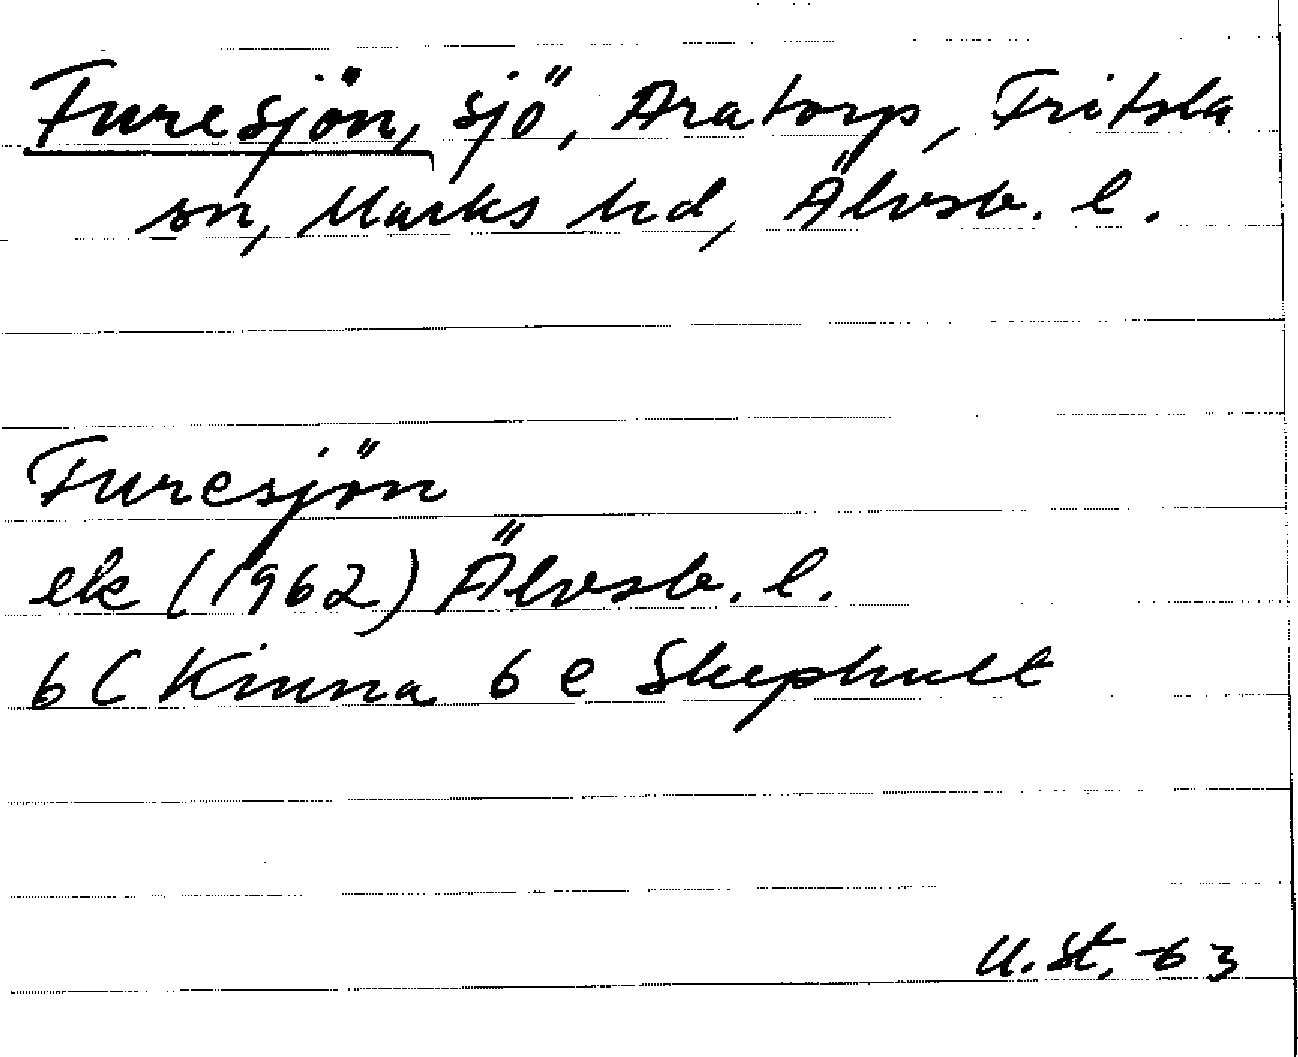 Furesjön, sjö, Aratorp, Fritsla
sn, Marks hd, Älvsb. l.
Furesjön
ek (1962) Älvsb. l.
6 C Kinna 6 e Skephult
U. St. -63